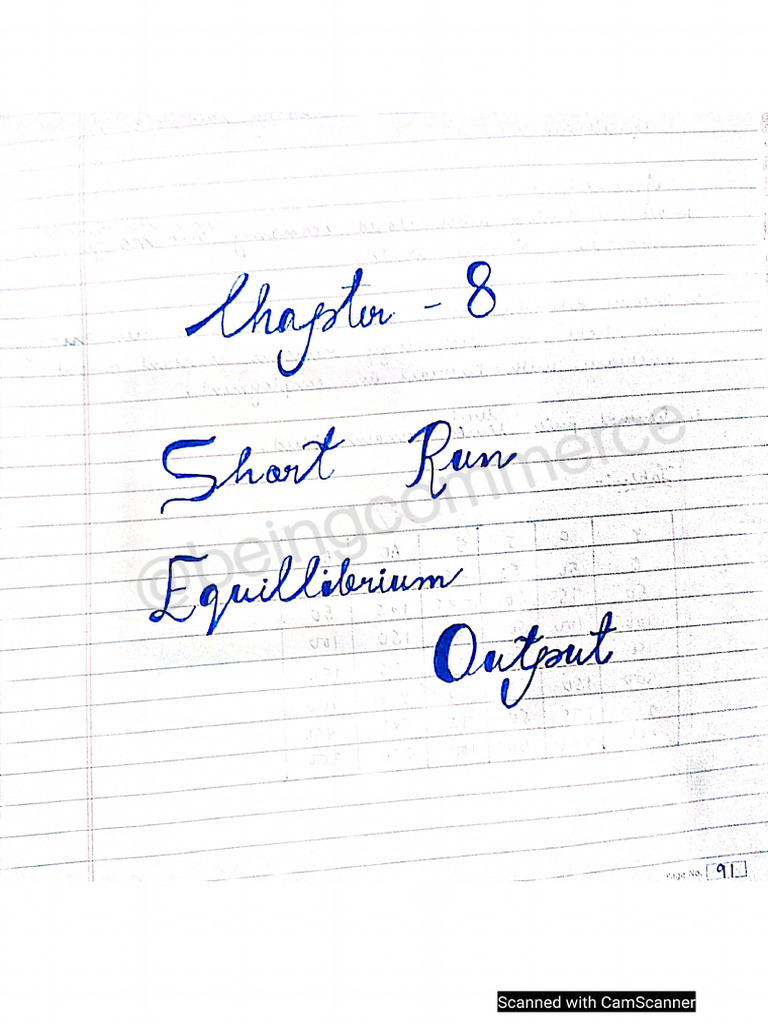 Chapter - 8
Short Run
@beingcommerce
Equillibrium
Output
Page No. 91
Scanned with CamScanner